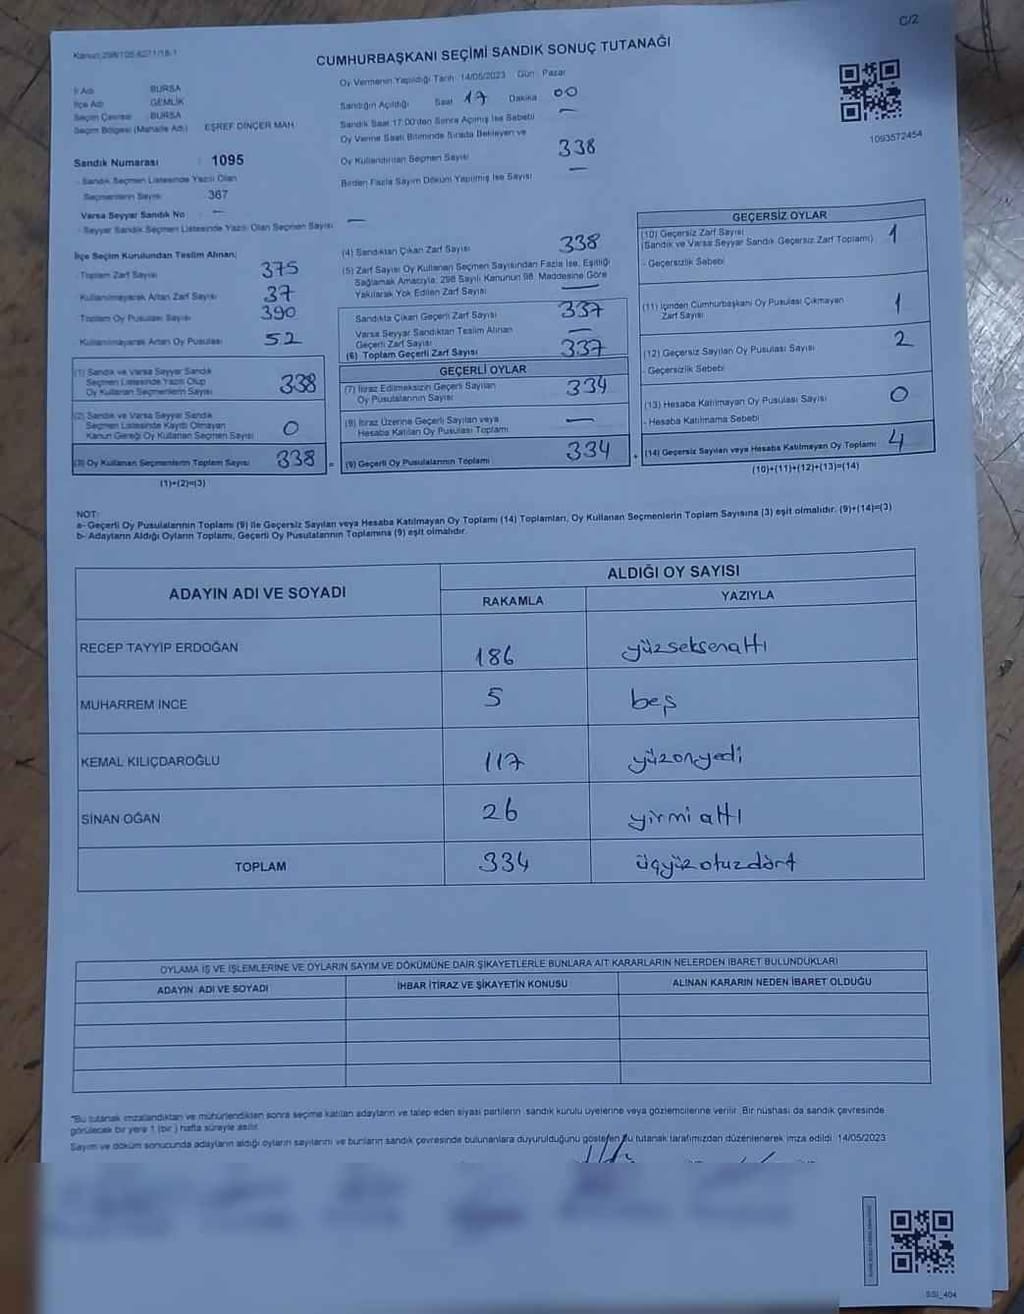 C/2
CUMHURBAŞKANI SEÇİMİ SANDIK SONUÇ TUTANAĞI
İl Adı BURSA
İlçe Adı GEMLİK
Seçim Çevresi BURSA
Seçim Bölgesi (Mahalle Adı) EŞREF DİNÇER MAH.
Sandık Numarası : 1095
- Sandık Seçmen Listesinde Yazılı Olan
Seçmenlerin Sayısı 367
Varsa Seyyar Sandık No : —
- Seyyar Sandık Seçmen Listesinde Yazılı Olan Seçmen Sayısı —
Oy Vermenin Yapıldığı Tarih : 14/05/2023 Gün : Pazar
Sandığın Açıldığı Saat 17 Dakika 00
Sandık Saat 17:00'den Sonra Açılmış İse Sebebi —
Oy Verme Saati Bitiminde Sırada Bekleyen ve
Oy Kullandırılan Seçmen Sayısı 338
Birden Fazla Sayım Döküm Yapılmış İse Sayısı —
1093572454
İlçe Seçim Kurulundan Teslim Alınan;
- Toplam Zarf Sayısı 375
- Kullanılmayarak Artan Zarf Sayısı 37
- Toplam Oy Pusulası Sayısı 390
- Kullanılmayarak Artan Oy Pusulası 52
(1) Sandık ve Varsa Seyyar Sandık
Seçmen Listesinde Yazılı Olup
Oy Kullanan Seçmenlerin Sayısı 338
(2) Sandık ve Varsa Seyyar Sandık
Seçmen Listesinde Kayıtlı Olmayan
Kanun Gereği Oy Kullanan Seçmen Sayısı 0
(3) Oy Kullanan Seçmenlerin Toplam Sayısı 338 =
(1)+(2)=(3)
(4) Sandıktan Çıkan Zarf Sayısı 338
(5) Zarf Sayısı Oy Kullanan Seçmen Sayısından Fazla İse, Eşitliği
Sağlamak Amacıyla, 298 Sayılı Kanunun 98. Maddesine Göre
Yakılarak Yok Edilen Zarf Sayısı —
Sandıkta Çıkan Geçerli Zarf Sayısı 337
Varsa Seyyar Sandıktan Teslim Alınan
Geçerli Zarf Sayısı —
(6) Toplam Geçerli Zarf Sayısı 337
GEÇERLİ OYLAR
(7) İtiraz Edilmeksizin Geçerli Sayılan
Oy Pusulasının Sayısı 334
(8) İtiraz Üzerine Geçerli Sayılan veya
Hesaba Katılan Oy Pusulası Toplamı —
(9) Geçerli Oy Pusulalarının Toplamı 334 +
GEÇERSİZ OYLAR
(10) Geçersiz Zarf Sayısı
(Sandık ve Varsa Seyyar Sandık Geçersiz Zarf Toplamı) 1
- Geçersizlik Sebebi
(11) İçinden Cumhurbaşkanı Oy Pusulası Çıkmayan
Zarf Sayısı 1
(12) Geçersiz Sayılan Oy Pusulası Sayısı 2
- Geçersizlik Sebebi
(13) Hesaba Katılmayan Oy Pusulası Sayısı 0
- Hesaba Katılmama Sebebi
(14) Geçersiz Sayılan veya Hesaba Katılmayan Oy Toplamı 4
(10)+(11)+(12)+(13)=(14)
NOT:
a- Geçerli Oy Pusulalarının Toplamı (9) ile Geçersiz Sayılan veya Hesaba Katılmayan Oy Toplamı (14) Toplamları, Oy Kullanan Seçmenlerin Toplam Sayısına (3) eşit olmalıdır. (9)+(14)=(3)
b- Adayların Aldığı Oyların Toplamı, Geçerli Oy Pusulalarının Toplamına (9) eşit olmalıdır.
ADAYIN ADI VE SOYADI ALDIĞI OY SAYISI
RAKAMLA YAZIYLA
RECEP TAYYİP ERDOĞAN 186 yüzseksenaltı
MUHARREM İNCE 5 beş
KEMAL KILIÇDAROĞLU 117 yüzonyedi
SİNAN OĞAN 26 yirmi altı
TOPLAM 334 üçyüzotuzdört
OYLAMA İŞ VE İŞLEMLERİNE VE OYLARIN SAYIM VE DÖKÜMÜNE DAİR ŞİKAYETLERLE BUNLARA AİT KARARLARIN NELERDEN İBARET BULUNDUKLARI
ADAYIN ADI VE SOYADI İHBAR İTİRAZ VE ŞİKAYETİN KONUSU ALINAN KARARIN NEDEN İBARET OLDUĞU
*Bu tutanak imzalandıktan ve mühürlendikten sonra seçime katılan adayların ve talep eden siyasi partilerin sandık kurulu üyelerine veya gözlemcilerine verilir. Bir nüshası da sandık çevresinde
görülecek bir yere 1 (bir) hafta süreyle asılır.
Sayım ve döküm sonucunda adayların aldığı oyların sayılarını ve bunların sandık çevresinde bulunanlara duyurulduğunu gösteren bu tutanak tarafımızdan düzenlenerek imza edildi. 14/05/2023
SSI_404